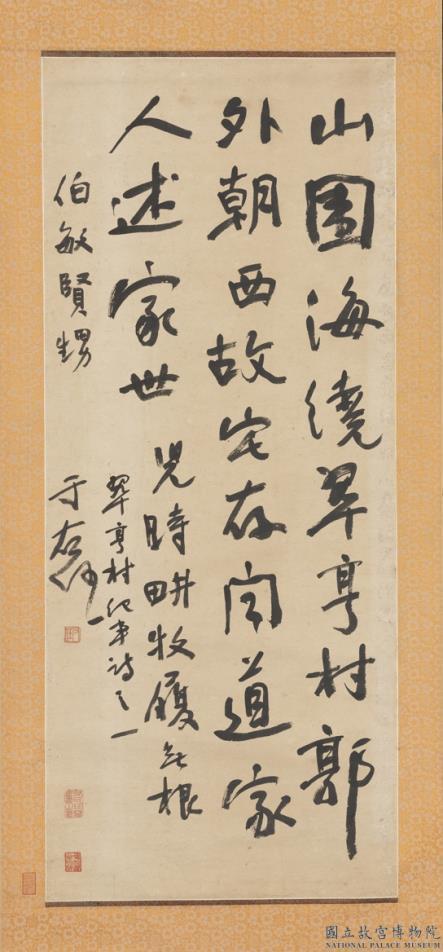 山圍海繞翠亨村郭
外朝西故宅存聞道家
人述家世
兒時畊牧履無根
翠亨村紀事詩之一
伯敏賢甥
于右任
國立故宮博物院
NATIONAL PALACE MUSEUM